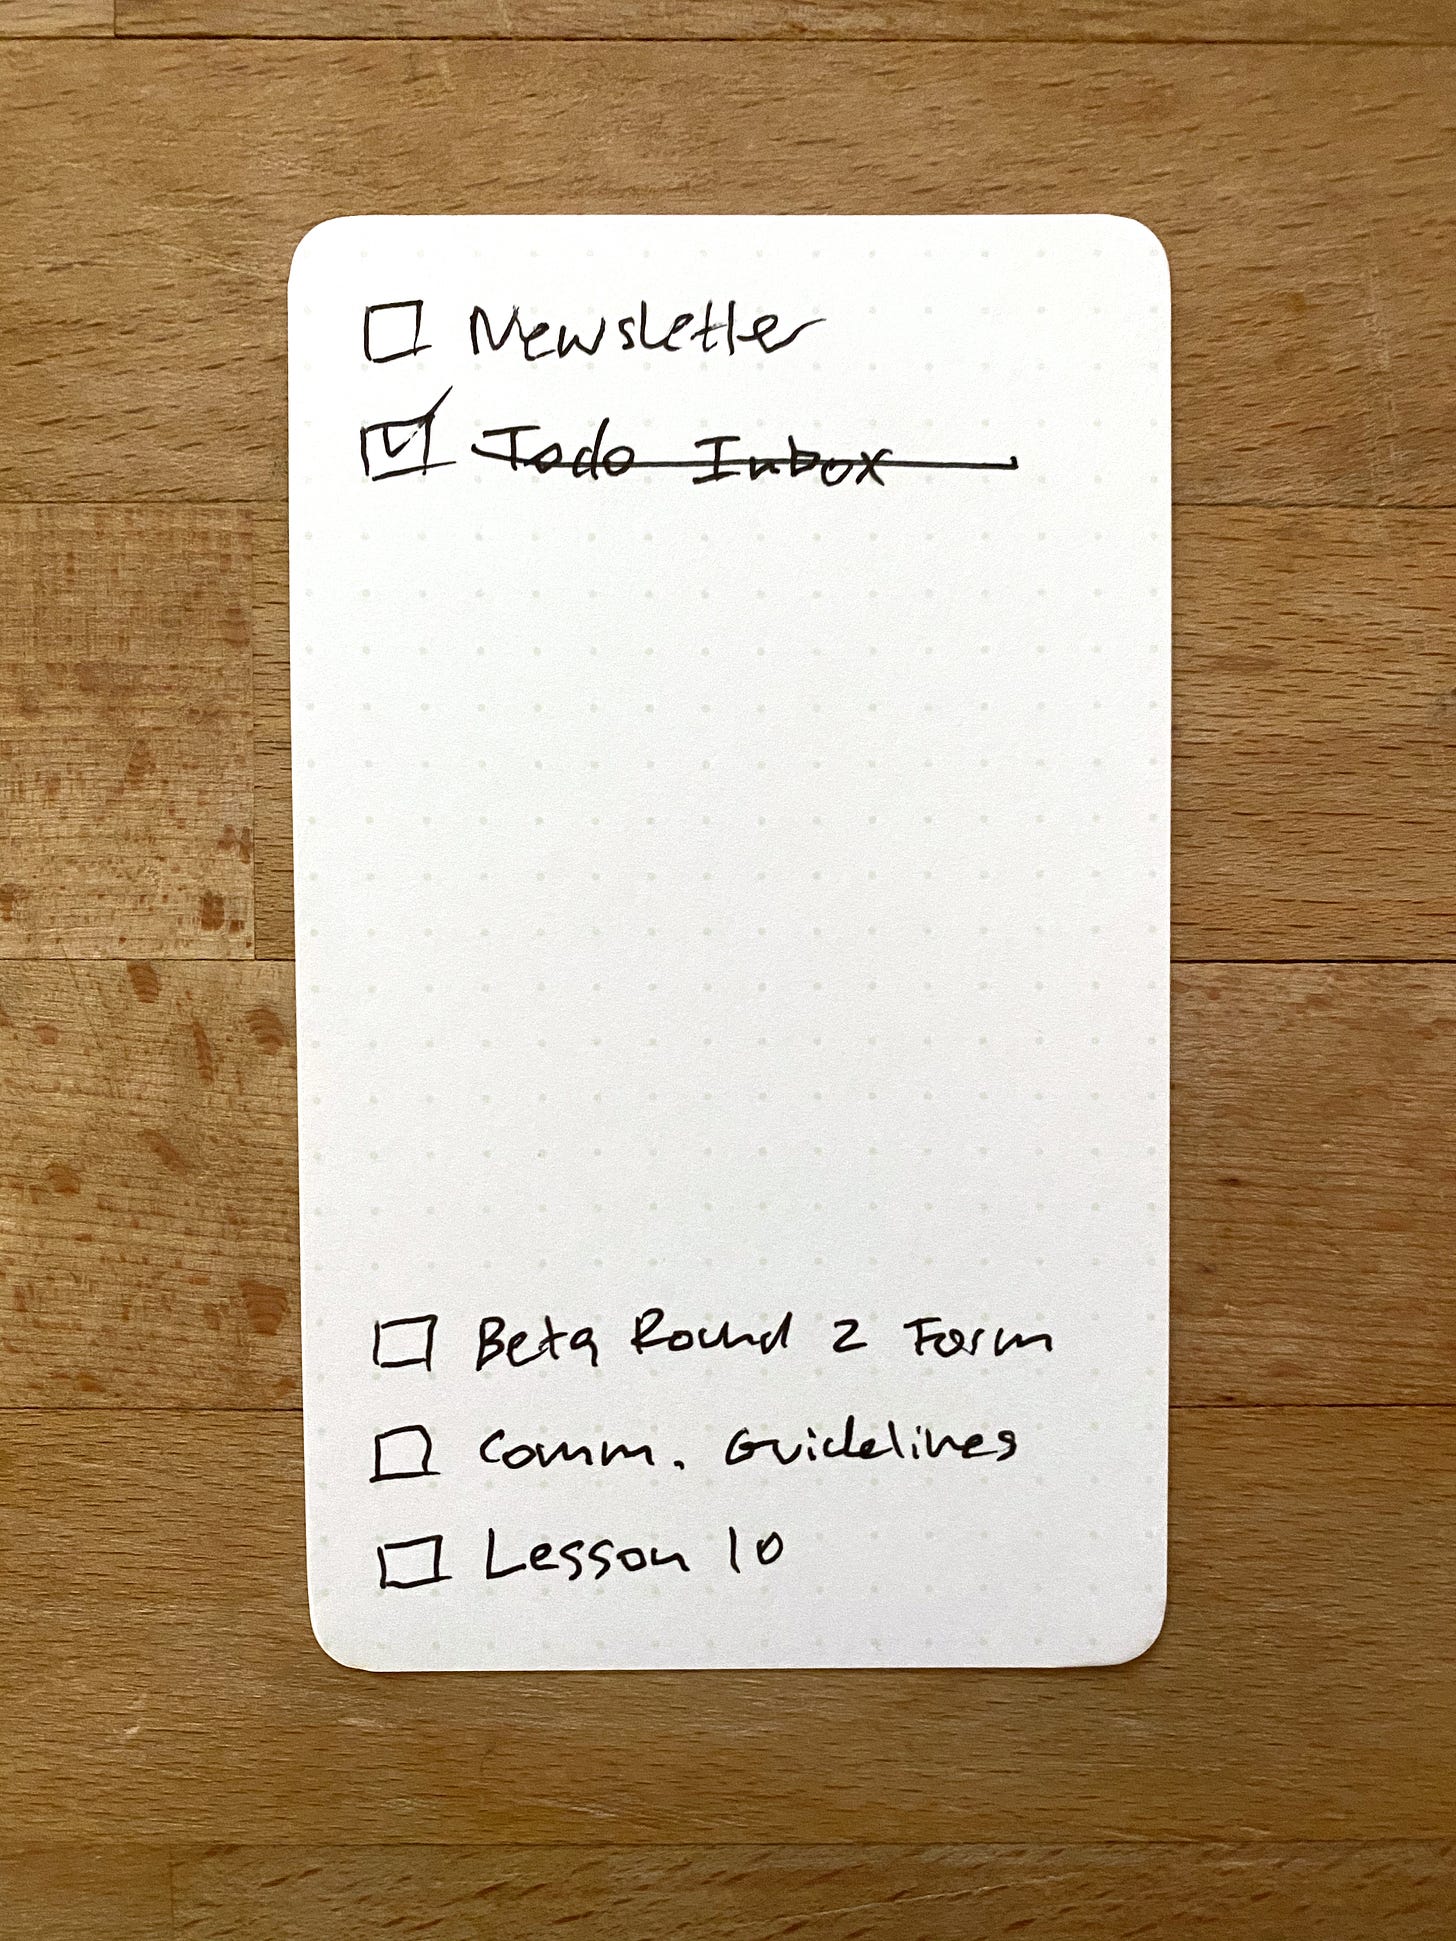 Newsletter
Todo Inbox
Beta Round 2 Form
Comm. Guidelines
Lesson 10